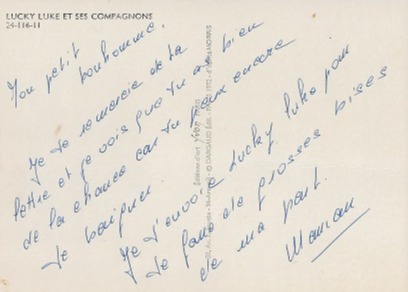 LUCKY LUKE ET SES COMPAGNONS
24-116-11
Mon petit bonhomme
Je te remercie de ta
lettre et je vois que tu as bien
de la chance car tu peux encore
te baigner
Je t'envoie Lucky Luke pour
te faire de grosses bises
de ma part.
Maman